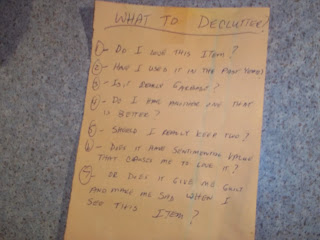 WHAT TO DECLUTTER!
1- DO I LOVE THIS ITEM?
2- HAVE I USED IT IN THE PAST YEAR?
3- IS IT REALLY GARBAGE?
4- DO I HAVE ANOTHER ONE THAT
IS BETTER?
5- SHOULD I REALLY KEEP TWO?
6- DOES IT HAVE SENTIMENTAL VALUE
THAT CAUSES ME TO LOVE IT?
7- OR DOES IT GIVE ME GUILT
AND MAKE ME SAD WHEN I
SEE THIS ITEM?